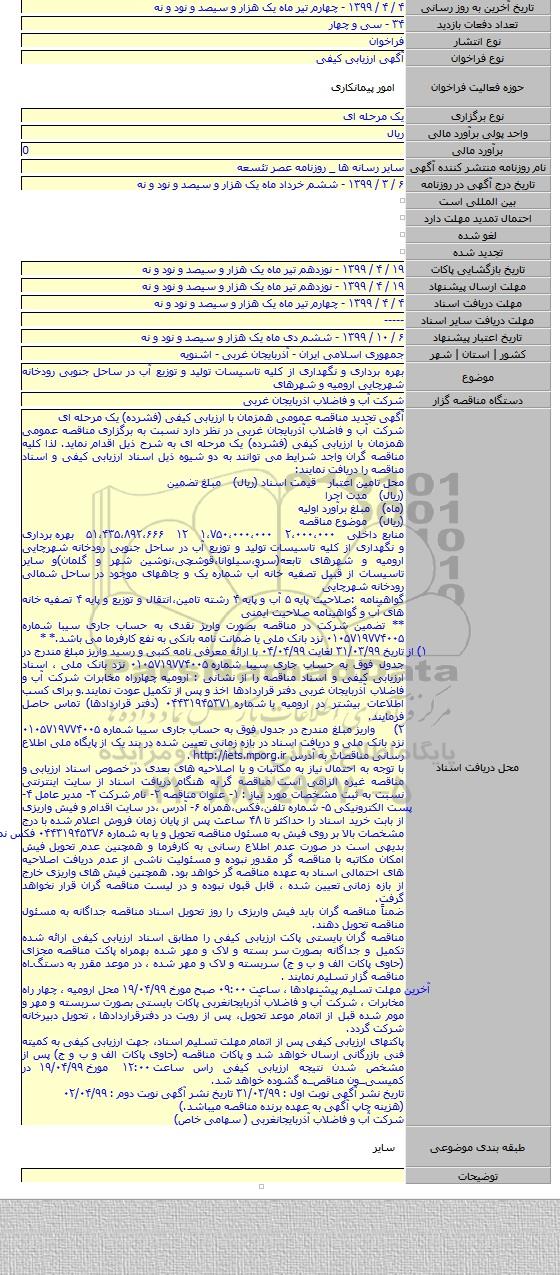 تاریخ آخرین به روز رسانی ۴ / ۴ / ۱۳۹۹ - چهارم تیر ماه یک هزار و سیصد و نود و نه
تعداد دفعات بازدید ۳۴ - سی و چهار
نوع انتشار فراخوان
نوع فراخوان آگهی ارزیابی کیفی
حوزه فعالیت فراخوان امور پیمانکاری
نوع برگزاری یک مرحله ای
واحد پولی برآورد مالی ریال
برآورد مالی 0
نام روزنامه منتشر کننده آگهی سایر رسانه ها _ روزنامه عصر تئسعه
تاریخ درج آگهی در روزنامه ۶ / ۳ / ۱۳۹۹ - ششم خرداد ماه یک هزار و سیصد و نود و نه
بین المللی است
احتمال تمدید مهلت دارد
لغو شده
تجدید شده
تاریخ بازگشایی پاکات ۱۹ / ۴ / ۱۳۹۹ - نوزدهم تیر ماه یک هزار و سیصد و نود و نه
مهلت ارسال پیشنهاد ۱۹ / ۴ / ۱۳۹۹ - نوزدهم تیر ماه یک هزار و سیصد و نود و نه
مهلت دریافت اسناد ۴ / ۴ / ۱۳۹۹ - چهارم تیر ماه یک هزار و سیصد و نود و نه
مهلت دریافت سایر اسناد -----
تاریخ اعتبار پیشنهاد ۶ / ۱۰ / ۱۳۹۹ - ششم دی ماه یک هزار و سیصد و نود و نه
کشور | استان | شهر جمهوری اسلامی ایران - آذربایجان غربی - اشنویه
موضوع بهره برداری و نگهداری از کلیه تاسیسات تولید و توزیع آب در ساحل جنوبی رودخانه
شهرچایی ارومیه و شهرهای
دستگاه مناقصه گزار شرکت آب و فاضلاب آذربایجان غربی
محل دریافت اسناد
آگهی تجدید مناقصه عمومی همزمان با ارزیابی کیفی (فشرده) یک مرحله ای
شرکت آب و فاضلاب آذربایجان غربی در نظر دارد نسبت به برگزاری مناقصه عمومی
همزمان با ارزیابی کیفی (فشرده) یک مرحله ای به شرح ذیل اقدام نماید. لذا کلیه
مناقصه گران واجد شرایط می توانند به دو شیوه ذیل اسناد ارزیابی کیفی و اسناد
مناقصه را دریافت نمایند:
محل تامین اعتبار قیمت اسناد (ریال) مبلغ تضمین
(ریال) مدت اجرا
(ماه) مبلغ برآورد اولیه
(ریال) موضوع مناقصه
منابع داخلی ۲،۰۰۰،۰۰۰ ۱،۷۵۰،۰۰۰،۰۰۰ ۱۲ ۵۱،۴۳۵،۸۹۲،۶۶۶ بهره برداری
و نگهداری از کلیه تاسیسات تولید و توزیع آب در ساحل جنوبی رودخانه شهرچایی
ارومیه و شهرهای تابعه(سرو،سیلوانا،قوشچی،نوشین شهر و گلمان)و سایر
تاسیسات از قبیل تصفیه خانه آب شماره یک و چاههای موجود در ساحل شمالی
رودخانه شهرچایی
گواهینامه :صلاحیت پایه ۵ آب و پایه ۴ رشته تامین،انتقال و توزیع و پایه ۴ تصفیه خانه
های آب و گواهینامه صلاحیت ایمنی
** تضمین شرکت در مناقصه بصورت واریز نقدی به حساب جاری سیبا شماره
۰۱۰۵۷۱۹۷۷۴۰۰۵ نزد بانک ملی یا ضمانت نامه بانکی به نفع کارفرما می باشد.* *
۱) از تاریخ ۳۱/۰۳/۹۹ لغایت ۰۴/۰۴/۹۹ با ارائه معرفی نامه کتبی و رسید واریز مبلغ مندرج در
جدول فوق به حساب جاری سیبا شماره ۰۱۰۵۷۱۹۷۷۴۰۰۵ نزد بانک ملی ، اسناد
ارزیابی کیفی و اسناد مناقصه را از نشانی : ارومیه چهارراه مخابرات شرکت آب و
فاضلاب آذربایجان غربی دفتر قراردادها اخذ و پس از تکمیل عودت نمایند.و برای کسب
اطلاعات بیشتر در ارومیه با شماره ۰۴۴۳۱۹۴۵۳۷۱ (دفتر قراردادها) تماس حاصل
فرمایند.
۲) واریز مبلغ مندرج در جدول فوق به حساب جاری سیبا شماره ۰۱۰۵۷۱۹۷۷۴۰۰۵
نزد بانک ملی و دریافت اسناد در بازه زمانی تعیین شده در بند یک از پایگاه ملی اطلاع
رسانی مناقصات به آدرس http://iets.mporg.ir .
با توجه به احتمال نیاز به مکاتبات و یا اصلاحیه های بعدی در خصوص اسناد ارزیابی و
مناقصه غیره الزامی است مناقصه گر به هنگام دریافت اسناد از سایت اینترنتی
نسبت به ثبت مشخصات مورد نیاز : ۱- عنوان مناقصه ۲- نام شرکت ۳- مدیر عامل ۴-
پست الکترونیکی ۵- شماره تلفن،فکس،همراه ۶- آدرس ،در سایت اقدام و فیش واریزی
از بابت خرید اسناد را حداکثر تا ۴۸ ساعت پس از پایان زمان فروش اعلام شده با درج
مشخصات بالا بر روی فیش به مسئول مناقصه تحویل و یا به شماره ۰۴۴۳۱۹۴۵۳۷۶ فکس
بدیهی است در صورت عدم اطلاع رسانی به کارفرما و همچنین عدم تحویل فیش
امکان مکاتبه با مناقصه گر مقدور نبوده و مسئولیت ناشی از عدم دریافت اصلاحیه
های احتمالی اسناد به عهده مناقصه گر خواهد بود. همچنین فیش های واریزی خارج
از بازه زمانی تعیین شده ، قابل قبول نبوده و در لیست مناقصه گران قرار نخواهد
گرفت.
ضمناً مناقصه گران باید فیش واریزی را روز تحویل اسناد مناقصه جداگانه به مسئول
مناقصه تحویل دهند.
مناقصه گران بایستی پاکت ارزیابی کیفی را مطابق اسناد ارزیابی کیفی ارائه شده
تکمیل و جداگانه بصورت سر بسته و لاک و مهر شده بهمراه پاکت مناقصه مجزای
(حاوی پاکات الف و ب و ج) سربسته و لاک و مهر شده ، در موعد مقرر به دستگـاه
مناقصه گزار تسلیم نمایند .
آخرین مهلت تسلیم پیشنهادها ، ساعت ۰۹:۰۰ صبح مورخ ۱۹/۰۴/۹۹ محل ارومیه ، چهار راه
مخابرات ، شرکت آب و فاضلاب آذربایجانغربی پاکات بایستی بصورت سربسته و مهر و
موم شده قبل از اتمام موعد تحویل، پس از رویت در دفترقراردادها ، تحویل دبیرخانه
شرکت گردد.
پاکتهای ارزیابی کیفی پس از اتمام مهلت تسلیم اسناد، جهت ارزیابی کیفی به کمیته
فنی بازرگانی ارسال خواهد شد و پاکات مناقصه (حاوی پاکات الف و ب و ج) پس از
مشخص شدن نتیجه ارزیابی کیفی راس ساعت ۱۲:۰۰ مورخ ۱۹/۰۴/۹۹ در
کمیسیـون مناقصـه گشوده خواهد شد.
تاریخ نشر آگهی نوبت اول : ۳۱/۰۳/۹۹ تاریخ نشر آگهی نوبت دوم : ۰۲/۰۴/۹۹
(هزینه چاپ آگهی به عهده برنده مناقصه میباشد.)
شرکت آب و فاضلاب آذربایجانغربی ( سهامی خاص)
طبقه بندی موضوعی سایر
توضیحات